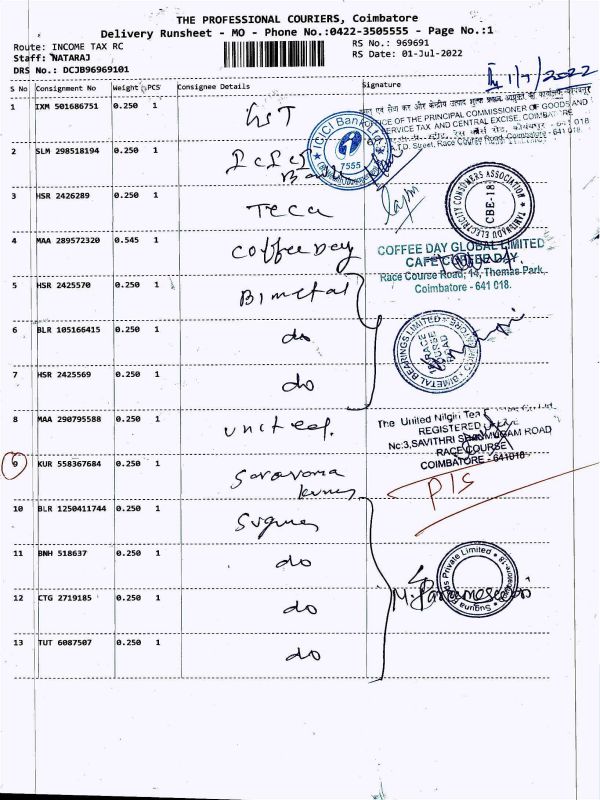 THE PROFESSIONAL COURIERS, Coimbatore
Delivery Runsheet - MO - Phone No.:0422-3505555 - Page No.:1
Route: INCOME TAX RC
RS No.: 969691
Staff: NATARAJ
RS Date: 01-Jul-2022
DRS No.: DCJB96969101
1/7/2022
S No Consignment No Weight PCS Consignee Details Signature
1 IXM 501686751 0.250 1 GST
OFFICE OF THE PRINCIPAL COMMISSIONER OF GOODS AND
SERVICE TAX AND CENTRAL EXCISE, COIMBATORE
A.T.D. Street, Race Course Road, Coimbatore - 641 018.
2 SLM 298518194 0.250 1 ICICI
Bank
ICICI Bank Ltd
7555
3 HSR 2426289 0.250 1 TECA
TAMILNADU ELECTRICITY CONSUMERS ASSOCIATION
CBE-18
4 MAA 289572320 0.545 1 Coffee Day
COFFEE DAY GLOBAL LIMITED
CAFE COFFEE DAY
Race Course Road, 14, Thomas Park,
Coimbatore - 641 018.
5 HSR 2425570 0.250 1 Bimetal
6 BLR 105166415 0.250 1 do
BIMETAL BEARINGS LIMITED
7 HSR 2425569 0.250 1 do
8 MAA 290795588 0.250 1 United
The United Nilgiri Tea
REGISTERED
No:3,SAVITHRI SHANMUGAM ROAD
RACE COURSE
COIMBATORE - 641018
9 KUR 558367684 0.250 1 Saravana
P/S
10 BLR 1250411744 0.250 1 Suguna
11 BNH 518637 0.250 1 do
Suguna Foods Private Limited
12 CTG 2719185 0.250 1 do
13 TUT 6087507 0.250 1 do